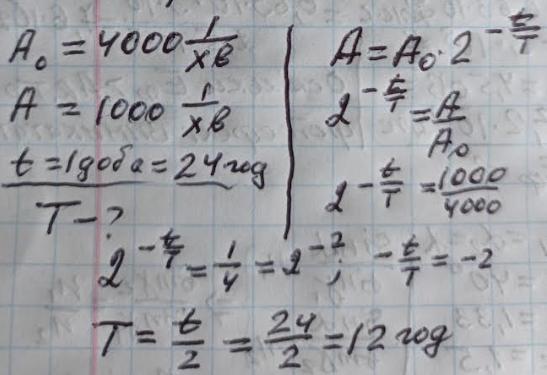 A₀ = 4000 1/хв
A = 1000 1/хв
t = 1 доба = 24 год
T - ?
A = A₀ · 2^(-t/T)
2^(-t/T) = A/A₀
2^(-t/T) = 1000/4000
2^(-t/T) = 1/4 = 2^(-2); -t/T = -2
T = t/2 = 24/2 = 12 год